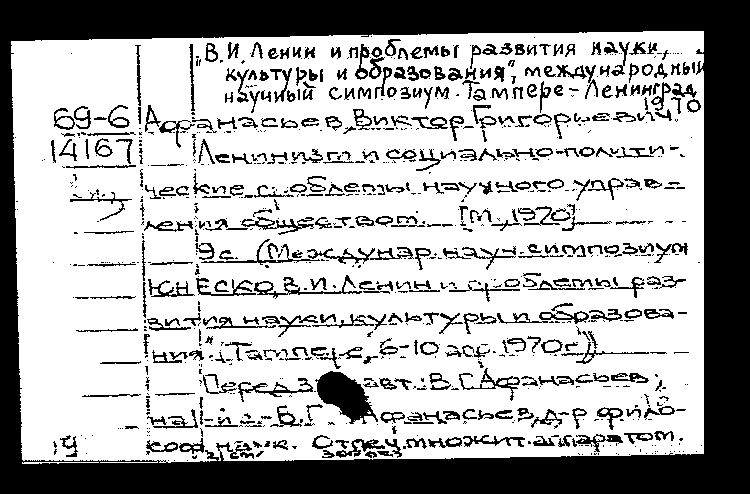 "В.И. Ленин и проблемы развития науки,
культуры и образования", международный
научный симпозиум. Тампере-Ленинград
1970
69-6
14167
Афанасьев, Виктор Григорьевич.
Ленинизм и социально-полити-
ческие проблемы научного управ-
ления обществом. [М., 1970]
9с (Междунар. науч. симпозиум
ЮНЕСКО „В.И. Ленин и проблемы раз-
вития науки, культуры и образова-
ния". (Тампере, 6-10 апр. 1970г.))
Перед авт.: В.Г. Афанасьев;
Б.Г. Афанасьев, д-р фило-
соф. наук. Отпеч. множит. аппаратом.